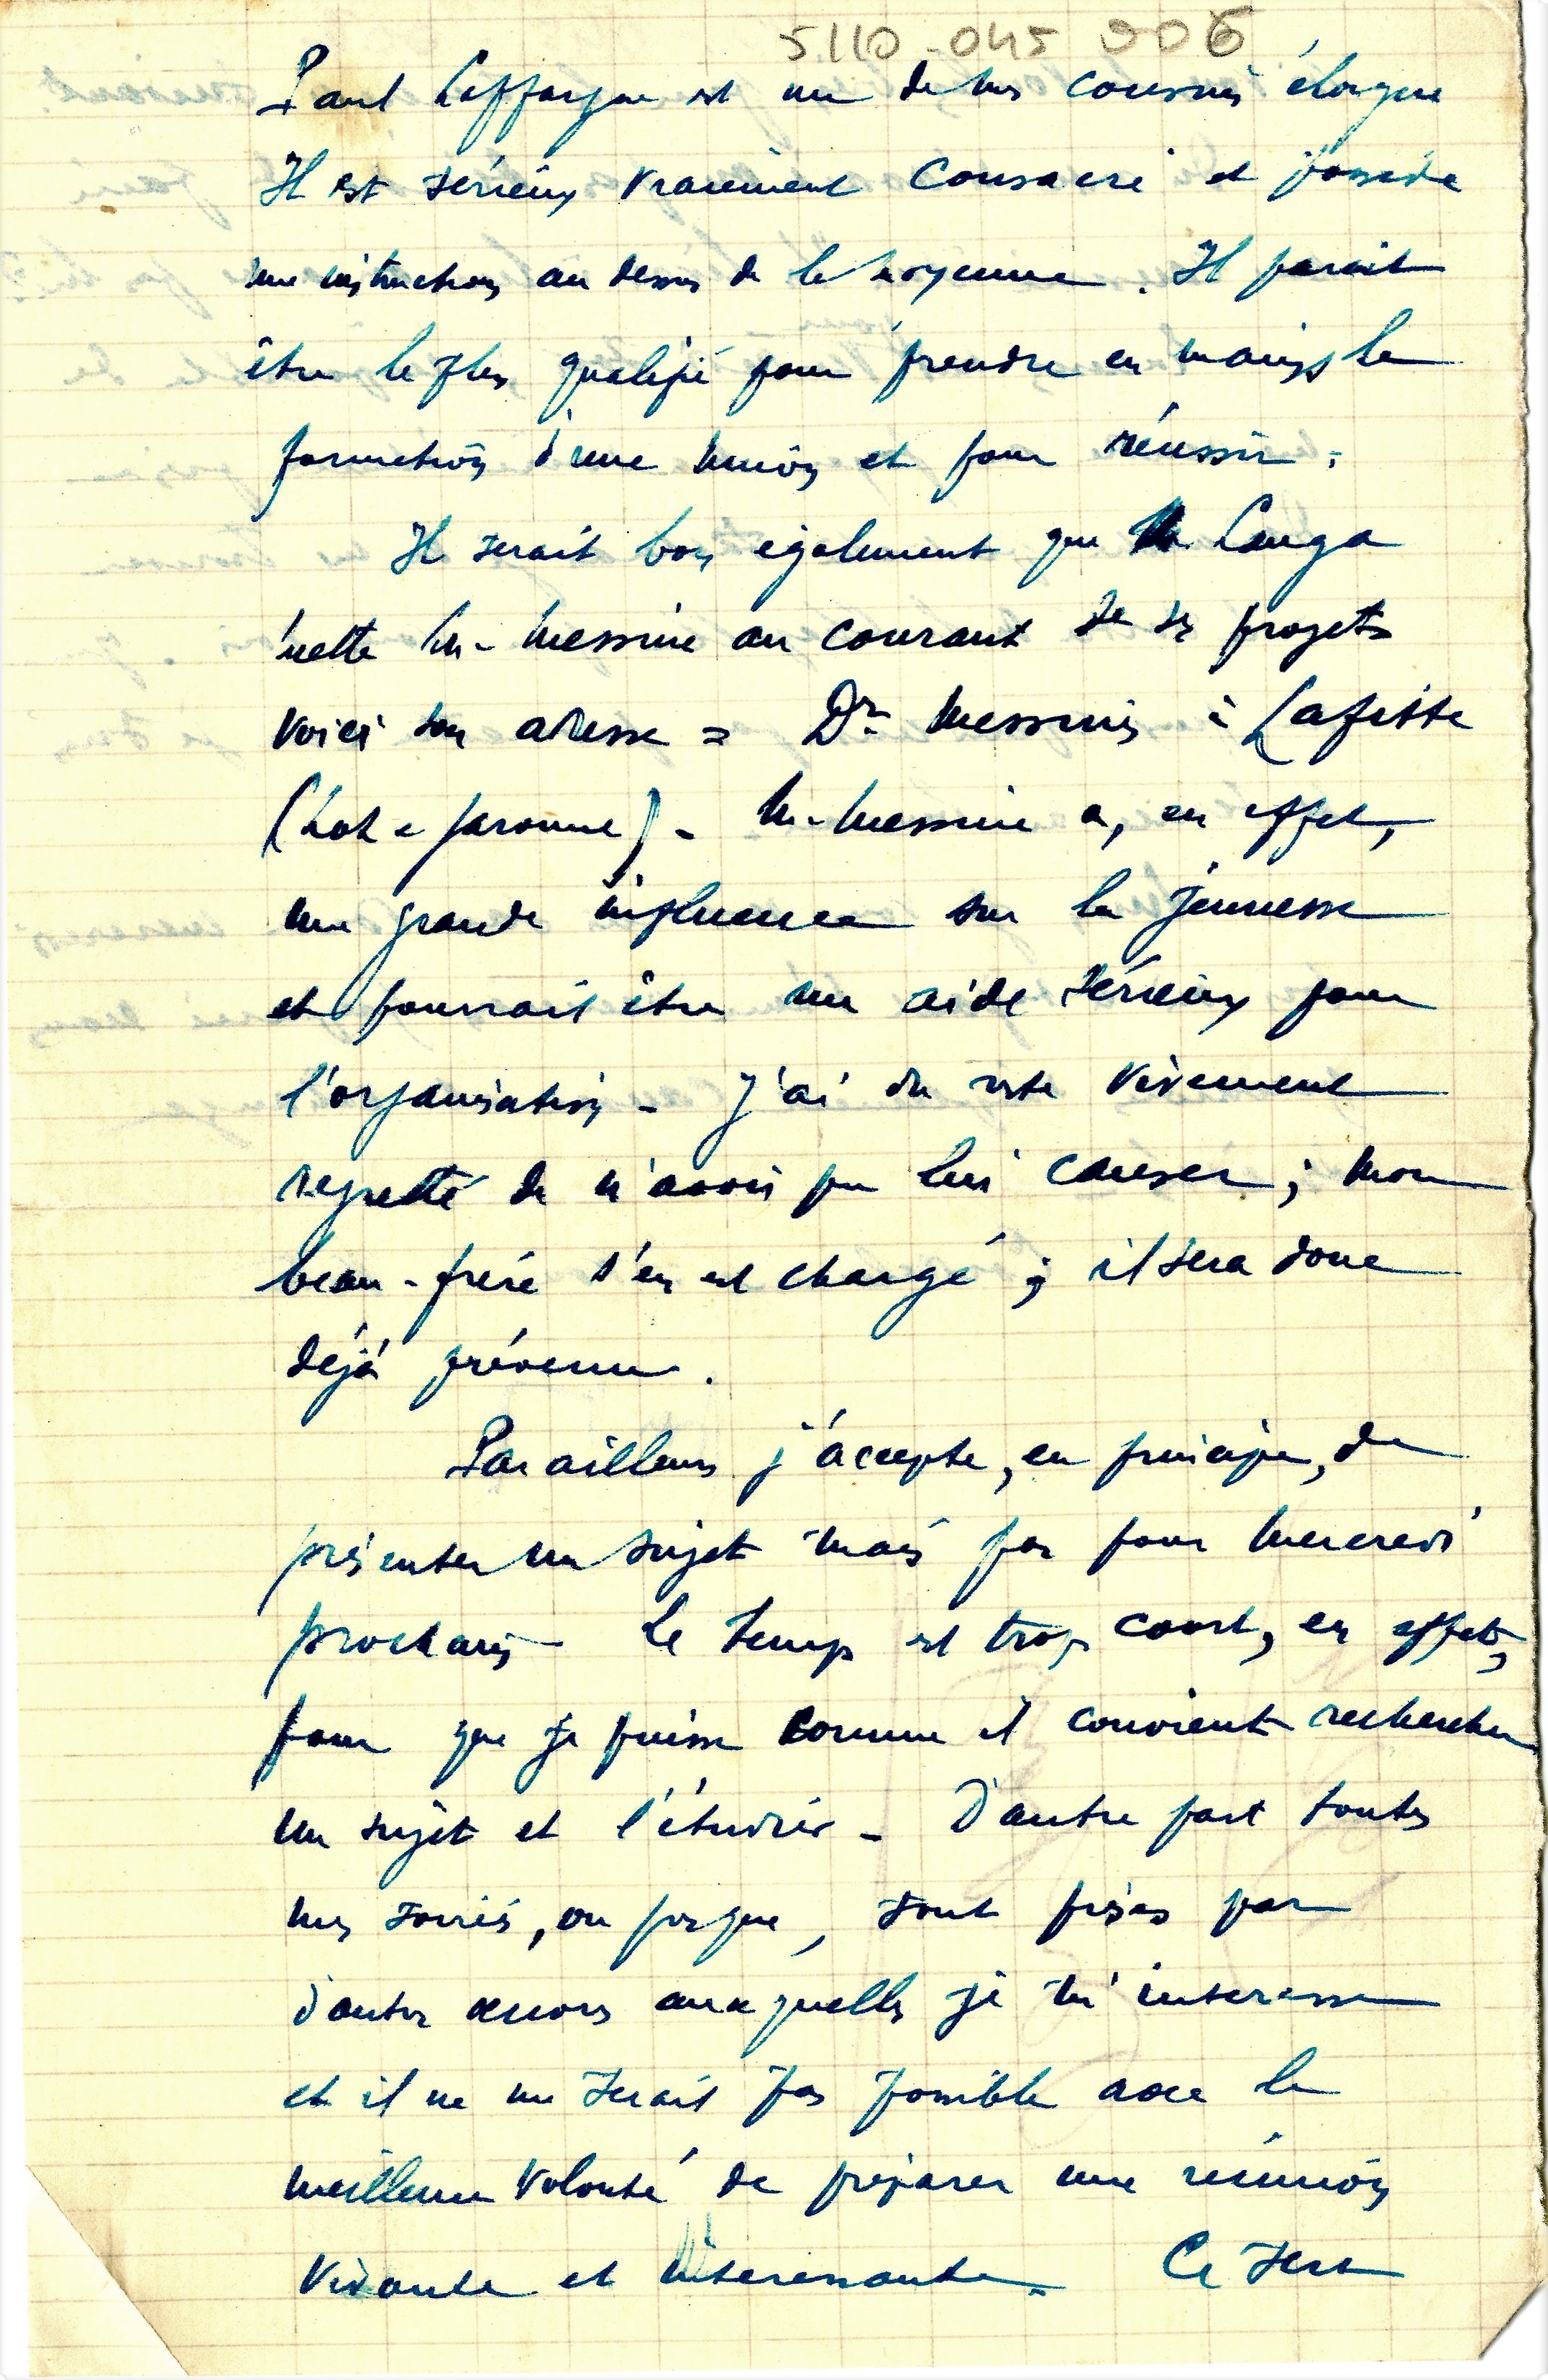 5110-045 006
Paul Laffargue est un de mes cousins éloigné
Il est sérieux vraiment consacré et possède
une instruction au dessus de la moyenne. Il parait
être le plus qualifié pour prendre en mains la
formation d'une union et pour réussir.
Il serait bon également que M. Cauga
mette M. Messine au courant de ses projets
voici son adresse = Dr Messines à Lafitte
(Lot e Garonne) - M. Messine a, en effet,
une grande influence sur la jeunesse
et pourrait être un aide sérieux pour
l'organisation - J'ai du reste vivement
regretté de n'avoir pu lui causer ; mon
beau-frère s'en est chargé ; il sera donc
déjà prévenu.
Par ailleurs j'accepte, en principe, de
présenter un sujet mais pas pour mercredi
prochain - Le temps est trop court, en effet,
pour que je puisse comme il convient rechercher
un sujet et l'étudier - D'autre part toutes
mes soirées, ou presque, sont prises par
d'autres œuvres auxquelles je m'interesse
et il ne me serait pas possible avec la
meilleure volonté de préparer une réunion
vivante et interessante - Ce sera